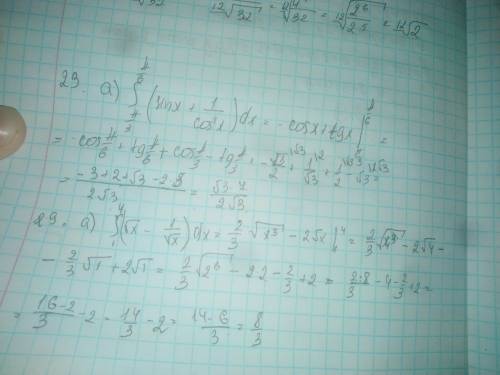 ¹²√32 = ¹²√(4/32) = ¹²√(2⁶/2⁵) = ¹²√2
29. а) ∫ (sinx + 1/cos²x)dx = -cosx + tgx | =
= -cos π/6 + tg π/6 + cos π/3 - tg π/3 = -√3/2 + 1/√3 + 1/2 - √3 =
= (-3+2+√3-2·3)/(2√3) = (√3-7)/(2√3)
29. а) ∫₁⁴ (√x - 1/√x)dx = 2/3 √x³ - 2√x |⁴ = 2/3 √4³ - 2√4 -
- 2/3 √1 + 2√1 = 2/3 √2⁶ - 2·2 - 2/3 + 2 = 2·8/3 - 4 - 2/3 + 2 =
= (16-2)/3 - 2 = 14/3 - 2 = (14-6)/3 = 8/3